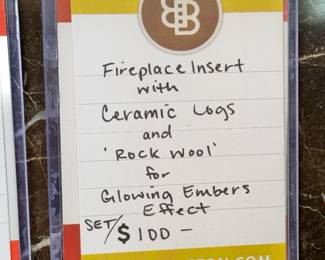 Fireplace Insert
with
Ceramic Logs
and
'Rock Wool'
for
Glowing Embers
Effect
SET/$100-